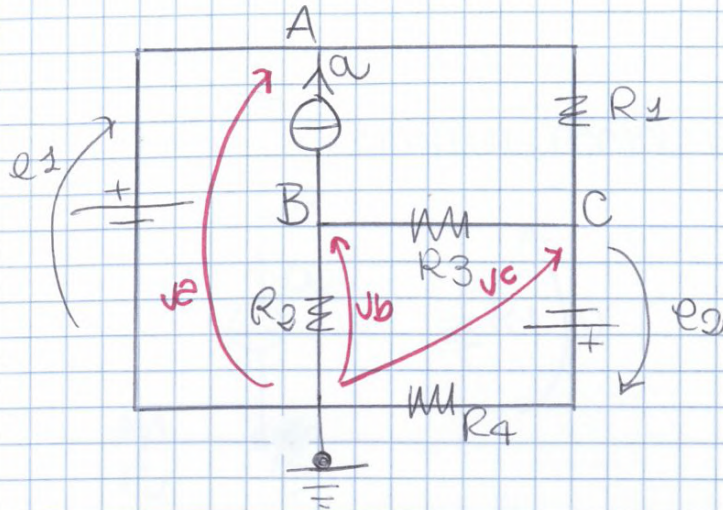 A
a
R1
e1
+
B
C
R3
va
R2
vb
vc
e2
+
R4